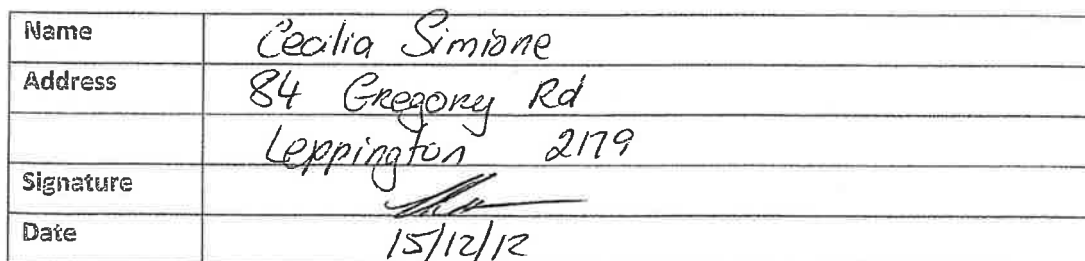 Name Cecilia Simione
Address 84 Gregory Rd
Leppington 2179
Signature
Date 15/12/12